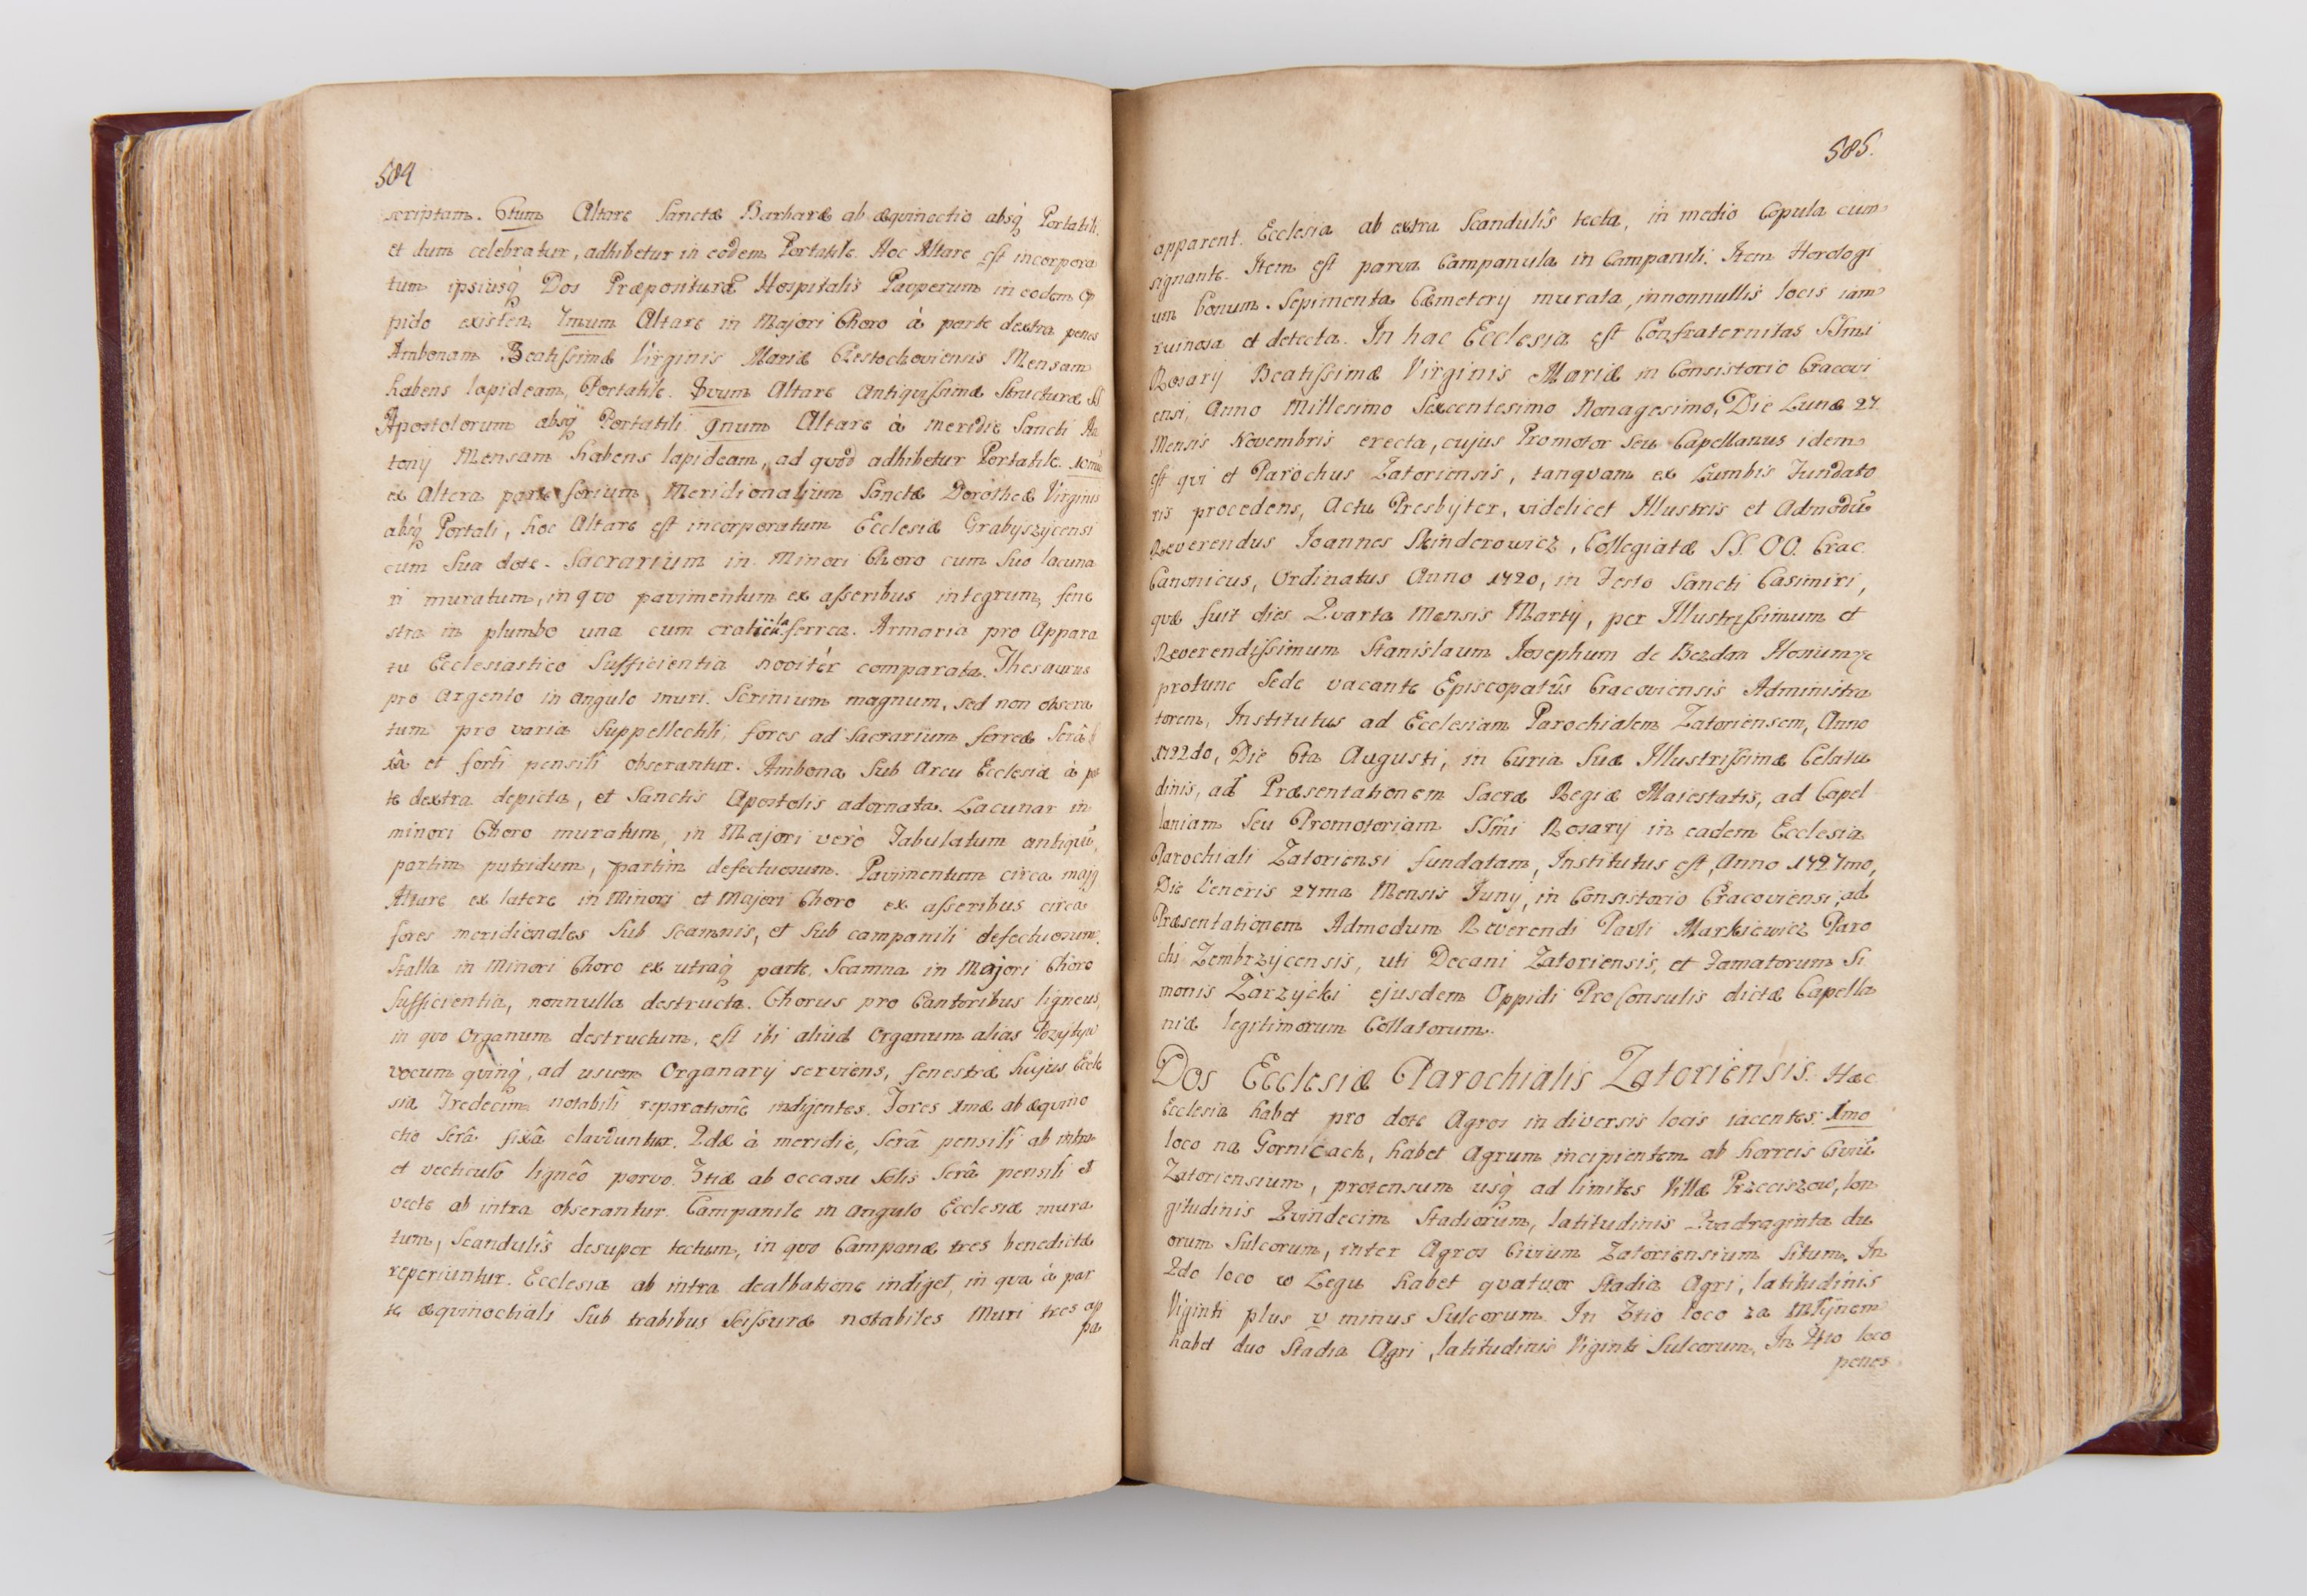 584
scriptam. 6tum Altare Sanctæ Barbaræ ab æqvinoctio absq̀ Portatili,
et dum celebratur, adhibetur in eôdem Portatile. Hoc Altare est incorpora
tum ipsiusq̀ Dos Præposituræ Hospitalis Pauperum in eodem Op
pido existen. 7mum Altare in Majori Choro à parte dextra penes
Ambonam Beatissimæ Virginis Mariæ Cżestochoviensis Mensam
habens lapideam, Portatile. 8vum Altare Antiqvissimæ Structuræ SS
Apostolorum absq̀ Portatili. 9num Altare à meridie Sancti An
tonij Mensam habens lapideam, ad qvod adhibetur Portatile. 10mũ
ex Altera parte forium Meridionalium Sanctæ Dorotheæ Virginis
absq̀ Portali, hoc Altare est incorporatum Ecclesiæ Grabyszÿcensi
cum Sua dote. Sacrarium in Minori Choro cum Suo lacuna
ri muratum, in qvo pavimentum ex asseribus integrum, fene
stra in plumbo una cum craticula ferrea. Armaria pro Appara
tu Ecclesiastico Sufficientia novitèr comparata. Thesaurus
pro Argento in angulo muri. Scrinium magnum, sed non obsera
tum pro varia Suppellectili, fores ad Sacrarium ferreæ Serâ fi
xâ et forti pensili obserantur. Ambona Sub Arcu Ecclesiæ à par
te dextra depicta, et Sanctis Apostolis adornata. Lacunar in
minori Choro muratum, in Majori verò Tabulatum antiqvũ,
partim putridum, partim defectuosum. Pavimentum circa majg
Altare ex latere in Minori et Majori Choro ex asseribus circa
fores meridionales Sub Scamnis, et Sub campanili defectuosum.
Stalla in Minori Choro ex utraq̀ parte, Scamna in Majori Choro
Sufficientia, nonnulla destructa. Chorus pro Cantoribus ligneus,
in qvo Organum destructum, est ibi aliud Organum alias Pozytyw
vocum qvinq̀, ad usum Organarij serviens, fenestræ hujus Eccle
siæ Tredecim notabili reparatione indigentes. Fores 1mæ ab æqvino
ctio Serâ fixâ clauduntur. 2dæ à meridie, Serâ pensili ab intra
et vecticulô ligneô parvo. 3tiæ ab occasu Solis Serâ pensili et
vecte ab intra obserantur. Campanile in angulo Ecclesiæ mura
tum, Scandulis desuper tectum, in qvo Campanæ tres benedictæ
reperiuntur. Ecclesia ab intra dealbatione indiget, in qva à par
te æqvinoctiali Sub trabibus Scissuræ notabiles Muri tres ap
pa
585.
apparent. Ecclesia ab extra Scandulis tecta, in medio Copula cum
signante. Item est parva Campanula in Campanili. Item Horologi
um bonum. Sepimenta Cæmeterij murata, in nonnullis locis iam
ruinosa et detecta. In hac Ecclesia est Confraternitas SSmi
Rosarij Beatissimæ Virginis Mariæ in Consistorio Cracovi
ensi, Anno Millesimo Sexcentesimo Nonagesimo, Die Lunæ 27
Mensis Novembris erecta, cujus Promotor Seu Capellanus idem
est qvi et Parochus Zatoriensis, tanqvam ex Lumbis Fundato
ris procedens, Actu Presbÿter, videlicet Illustris et Admodũ
Reverendus Joannes Skinderowicz, Collegiatæ SS. OO. Crac.
Canonicus, Ordinatus Anno 1720, in Festo Sancti Casimiri,
qvæ fuit dies Qvarta Mensis Martij, per Illustrissimum et
Reverendissimum Stanislaum Josephum de Bezdan Hosium &c
protunc Sede vacante Episcopatûs Cracoviensis Administra
torem, Institutus ad Ecclesiam Parochialem Zatoriensem, Anno
1722do, Die 6ta Augusti, in Curia Suæ Illustrissimæ Celsitu
dinis, ad Præsentationem Sacræ Regiæ Maiestatis, ad Capel
laniam Seu Promotoriam SSmi Rosarij in eadem Ecclesia
Parochiali Zatoriensi fundatam, Institutus est, Anno 1727mo,
Die Veneris 27ma Mensis Junij, in Consistorio Cracoviensi, ad
Præsentationem Admodum Reverendi Pauli Markiewicz Paro
chi Zembrzÿcensis, uti Decani Zatoriensis, et Famatorum Si
monis Zarzÿcki ejusdem Oppidi ProConsulis dictæ Capella
niæ legitimorum Collatorum.
Dos Ecclesiæ Parochialis Zatoriensis. Hæc
Ecclesia habet pro dote Agros in diversis locis iacentes. 1mo
loco na Gornicach, habet Agrum incipientem ab horreis Civiũ
Zatoriensium, protensum usq̀ ad limites Villæ Przeciszow, lon
gitudinis Qvindecim Stadiorum, latitudinis Qvadraginta du
orum Sulcorum, inter Agros Civium Zatoriensium Situm. In
2do loco w Łegu habet qvatuor Stadia Agri, latitudinis
Viginti plus v minus Sulcorum. In 3tio loco za Młÿnem
habet duo Stadia Agri, latitudinis Viginti Sulcorum. In 4to loco
penes